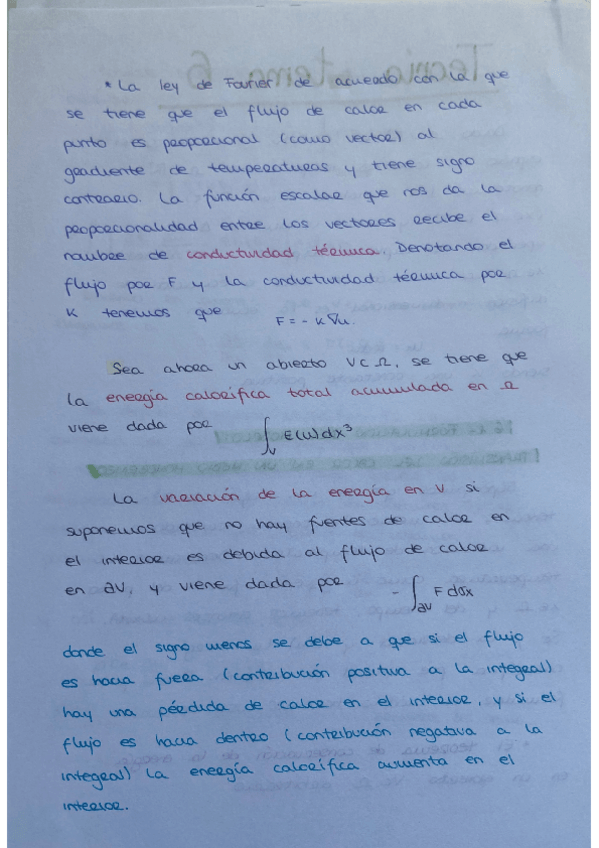 * La ley de Fourier de acuerdo con la que
se tiene que el flujo de calor en cada
punto es proporcional (como vector) al
gradiente de temperaturas y tiene signo
contrario. La función escalar que nos da la
proporcionalidad entre los vectores recibe el
nombre de conductividad térmica. Denotando el
flujo por F y la conductividad térmica por
K tenemos que F = - K ∇u.
Sea ahora un abierto V ⊂ Ω, se tiene que
la energía calorífica total acumulada en Ω
viene dada por ∫_V E(u)dx³
La variación de la energía en V si
suponemos que no hay fuentes de calor en
el interior es debida al flujo de calor
en ∂V, y viene dada por - ∫_∂V F dσx
donde el signo menos se debe a que si el flujo
es hacia fuera (contribución positiva a la integral)
hay una pérdida de calor en el interior, y si el
flujo es hacia dentro (contribución negativa a la
integral) la energía calorífica aumenta en el
interior.